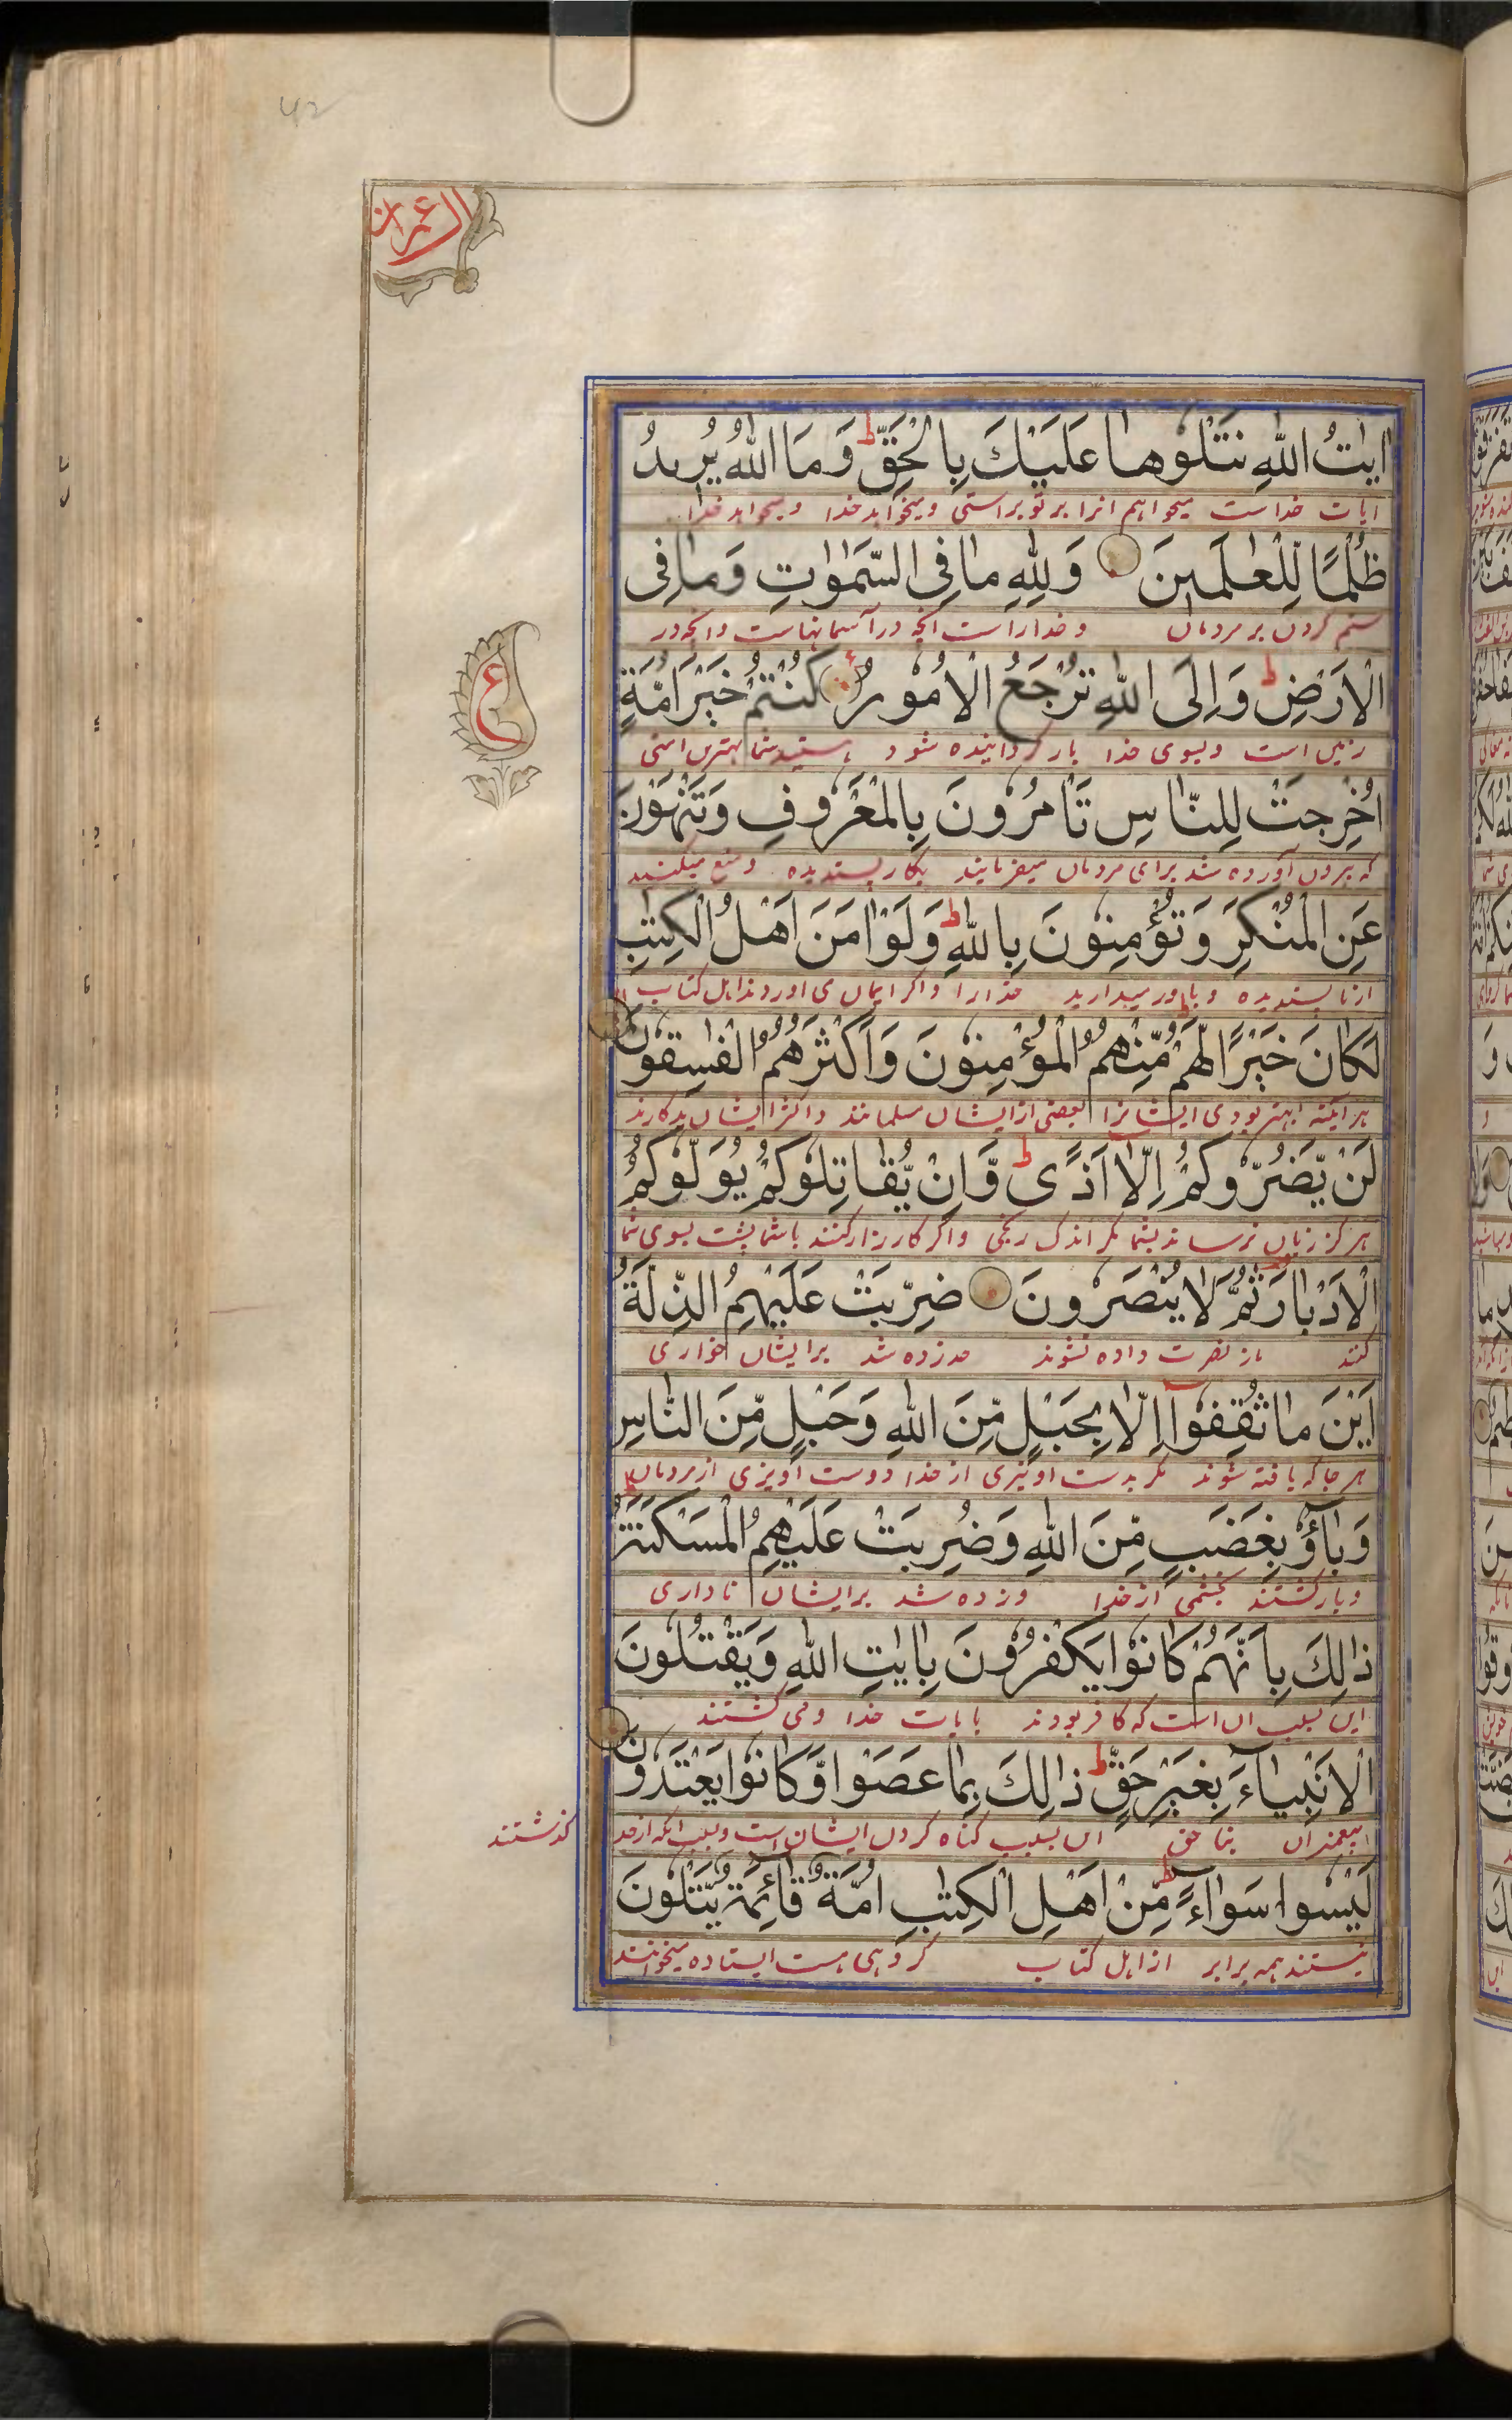 ال عمران
ایٰتُ اللّٰهِ نَتْلُوهَا عَلَیْكَ بِالْحَقِّ ط وَمَا اللّٰهُ یُرِیدُ
ایات خداست میخواهیم انرا بر تو براستی ونمیخواهد خدا
ظُلْمًا لِّلْعٰلَمِینَ وَلِلّٰهِ مَا فِی السَّمٰوٰتِ وَمَا فِی
ستم کردن بر مردمان وخداراست انچه در آسمانهاست وانچه در
الْاَرْضِ ط وَاِلَی اللّٰهِ تُرْجَعُ الْاُمُورُ كُنْتُمْ خَیْرَ اُمَّةٍ
زمین است وبسوی خدا باز گردانیده شود هستید شما بهترین امتی
ع
اُخْرِجَتْ لِلنَّاسِ تَاْمُرُونَ بِالْمَعْرُوفِ وَتَنْهَوْنَ
که بیرون آورده شد برای مردمان میفرمایند بکار پسندیده ومنع میکنند
عَنِ الْمُنْكَرِ وَتُؤْمِنُونَ بِاللّٰهِ ط وَلَوْ اٰمَنَ اَهْلُ الْكِتٰبِ
از ناپسندیده وباور میدارید خدارا واکر ایمان می اوردند اهل کتاب
لَكَانَ خَیْرًا لَّهُمْ ط مِّنْهُمُ الْمُؤْمِنُونَ وَاَكْثَرُهُمُ الْفٰسِقُونَ
هر اینه بهتر بودی ایشانرا بعضی از ایشان مسلمانند واکثر ایشان بدکارند
لَنْ یَّضُرُّوكُمْ اِلَّا اَذًی ط وَّاِنْ یُّقَاتِلُوكُمْ یُوَلُّوكُمُ
هر کز زیان نرسانند بشما مکر اندک رنجی واکر کارزار کنند با شما پشت بسوی شما
الْاَدْبَارَ ثُمَّ لَا یُنْصَرُونَ ضُرِبَتْ عَلَیْهِمُ الذِّلَّةُ
کنند باز نصرت داده نشوند زده شد بر ایشان خواری
اَیْنَ مَا ثُقِفُوا اِلَّا بِحَبْلٍ مِّنَ اللّٰهِ وَحَبْلٍ مِّنَ النَّاسِ
هر جا که یافته شوند مکر بدست اویزی از خدا ودست اویزی از مردمان
وَبَآؤُ بِغَضَبٍ مِّنَ اللّٰهِ وَضُرِبَتْ عَلَیْهِمُ الْمَسْكَنَةُ
وبازکشتند بخشمی از خدا وزده شد بر ایشان ناداری
ذٰلِكَ بِاَنَّهُمْ كَانُوا یَكْفُرُونَ بِاٰیٰتِ اللّٰهِ وَیَقْتُلُونَ
این بسبب ان است که کافر بودند بایات خدا ومی کشتند
الْاَنْبِیَآءَ بِغَیْرِ حَقٍّ ط ذٰلِكَ بِمَا عَصَوْا وَّكَانُوا یَعْتَدُونَ
پیغمبران بناحق این بسبب کناه کردن ایشان است وبسبب انکه از حد
کذشتند
لَیْسُوا سَوَآءً ط مِّنْ اَهْلِ الْكِتٰبِ اُمَّةٌ قَآئِمَةٌ یَّتْلُونَ
نیستند همه برابر از اهل کتاب کروهی هست ایستاده میخوانند